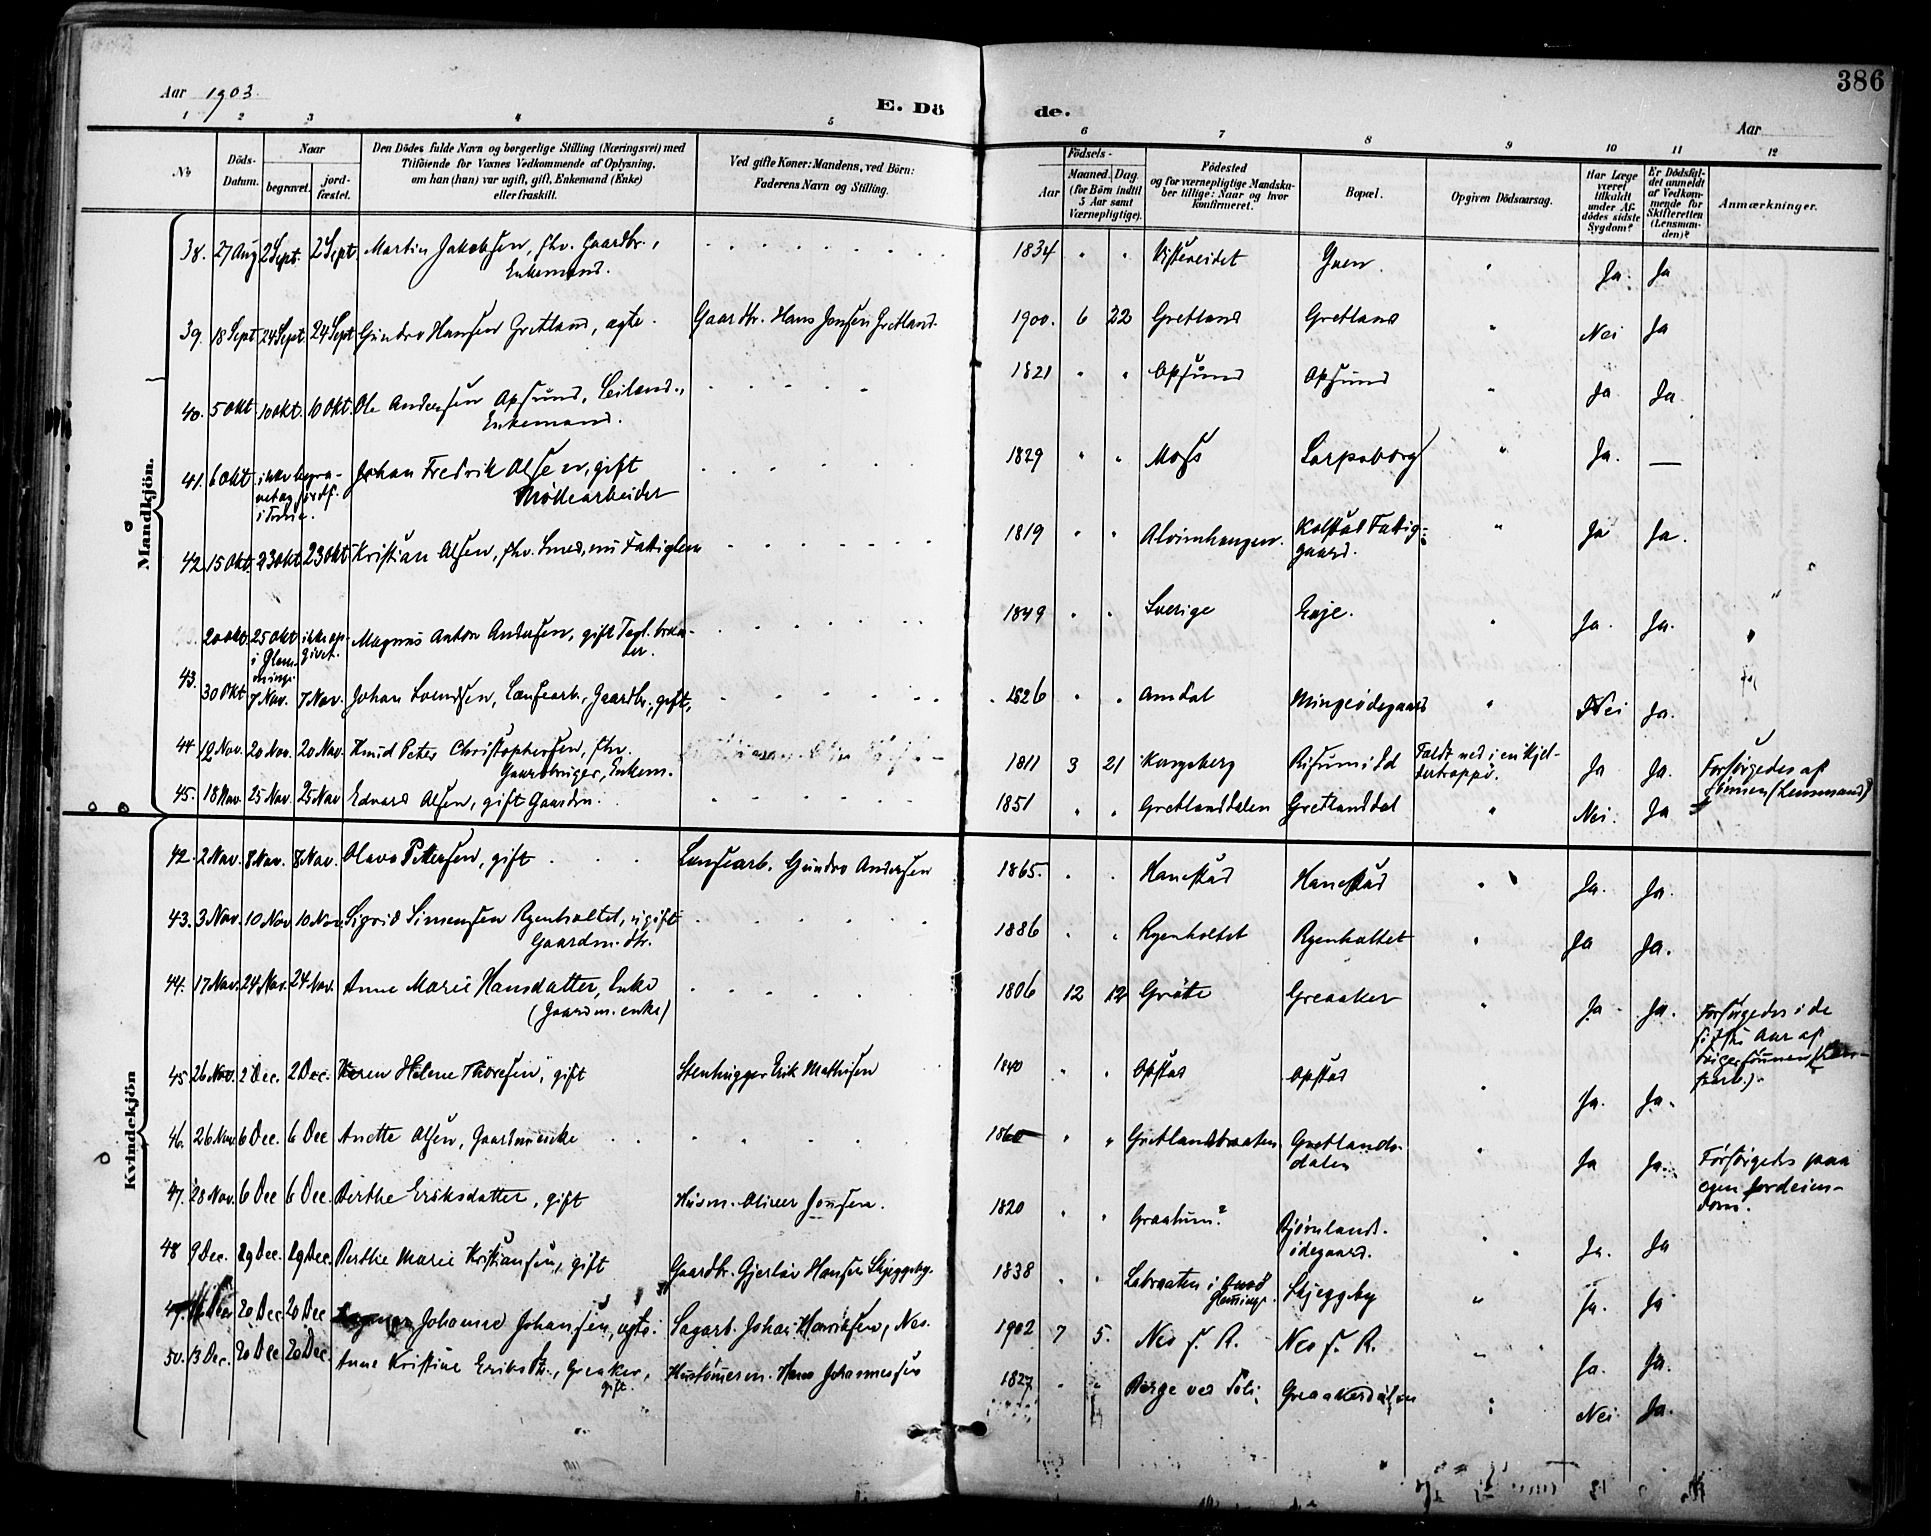 386
Aar 1903.
E. Döde.
Aar
1 2 3 4 5 6 7 8 9 10 11 12
No
Döds-Datum.
Naar
begravet.
jordfæstet.
Den Dödes fulde Navn og borgerlige Stilling (Næringsvei) med
Tilföiende for Voxnes Vedkommende af Oplysning,
om han (hun) var ugift, gift, Enkemand (Enke)
eller fraskilt.
Ved gifte Koner: Mandens, ved Börn:
Faderens Navn og Stilling.
Födsels-
Aar
Maaned.
Dag.
(for Börn indtil
5 Aar samt
Værnepligtige).
Födested
og for værnepligtige Mandska-
ber tillige: Naar og hvor
konfirmeret.
Bopæl.
Opgiven Dödsaarsag.
Har Læge
været
tilkaldt
under Af-
dödes sidste
Sygdom?
Er Dödsfal-
det anmeldt
af Vedkom-
mende for
Skifteretten
(Lensman-
den)?
Anmærkninger.
Mandkjön.
38. 27 Aug 2 Sept. 2 Sept Martin Jakobsen, fhv. Gaardbr., 1834 " " Vistereidet Ja. Ja
Enkemand.
39. 18 Sept 24 Sept 24 Sept Gundro Hansen Gretland, ægte. Gaardbr. Hans Jensen Gretland. 1900. 6 22 Gretland Gretland " Nei Ja
40. 5 Okt 10 Okt. 10 Okt. Ole Andersen Opsund, Leiland., 1821 " " Opsund Opsund " Ja Ja.
Enkemand.
41. 6 Okt ikke begra- Johan Fredrik Olsen, gift 1829 " " Moss Sarpsborg " Ja. —
vet og jordf. Möllearbeider
i Tune.
42. 15 Okt. 23 Okt 23 Okt Kristian Olsen, fhv. Smed, nu Fattiglem 1819 " " Alvimhaugen. Kolstad Fattig- " Ja Ja.
gaard.
20 Okt. 25 Okt ikke op- Magnus Anton Andersen, gift Tegl.bræn- 1849 " " Sverige Enje. " Ja. Ja.
i Glem- givet. der.
minge
43. 30 Okt 7 Nov. 7 Nov. Johan Svendsen, Lensearb., Gaardbr., gift, 1826 " " Omdal Mingeödegaard " Nei Ja.
44 12 Nov. 20 Nov. 20 Nov. Knud Peter Christophersen, fhv. 1811 3 21 Kongsberg Risum i Id Faldt ned i en Kjel- Ja Ja. Forsörgedes af
Gaardbruger, Enkem. dertrappe. sönnen (Lensmand)
45. 18 Nov. 25 Nov. 25 Nov Edvard Olsen, gift Gaardm. 1851 " " Gretlanddalen Gretlanddal " Nei. Ja
Kvindekjön
42. 2 Nov. 8 Nov. 8 Nov. Olava Pettersen, gift Lensearb. Gundro Andersen 1865. " " Hanestad Hanestad " Ja. Ja.
43. 3 Nov. 10 Nov 10 Nov. Sigrid Simensen Ryenholtet, ugift 1886 " " Ryenholtet Ryenholtet " Ja Ja.
Gaardm. dtr.
44. 17 Nov. 24 Nov. 24 Nov. Anne Marie Hansdatter, Enke 1806 12 12 Gröte Greaaker " Ja Ja. Forsörgedes i de
(Gaardm. enke) sidste Aar af
svigersönnen
45 26 Nov. 2 Dec. 2 Dec. Karen Helene Thoresen, gift Stenhugger Erik Mathisen 1840 " " Opstad Opstad " Ja. Ja.
46. 26 Nov. 6 Dec. 6 Dec Anette Olsen, Gaardmenke 1860 " " Gretlandbraaten Gretlands- " Ja Ja. Forsörgedes paa
dalen egen Jordeien-
dom.
47. 28 Nov. 6 Dec 6 Dec. Berthe Eriksdatter, gift Husm. Oliver Jonsen. 1820 " " Graatun? Bjørnland. " Ja. Ja
ödegaard.
48 9 Dec. 29 Dec. 29 Dec. Berthe Marie Kristiansen, gift Gaardbr. Gjerlöv Hansen Skjeggeby. 1838 " " Labraaten i Skjeggeby " Ja. Ja
Glemminge.
20 Dec 20 Dec Johanne Johansen, ægte. Sagarb. Johan Henriksen, Nes. 1902 7 5. Nes f. R. Nes f. R. " Ja. Ja.
50. 13 Dec. 20 Dec 20 Dec. Anne Kristine Eriksdtr., Greaker, Hustömerm. Hans Johannessen 1827 " " Berge ved Greaakerdalen " Nei Ja.
gift.